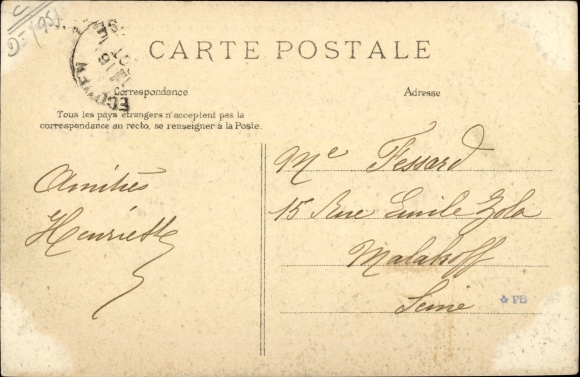 CARTE POSTALE
Correspondance
Adresse
Tous les pays étrangers n'acceptent pas la
correspondance au recto, se renseigner à la Poste.
Amitiés
Henriette
Me Fessard
15 Rue Emile Zola
Malakoff
Seine
PB